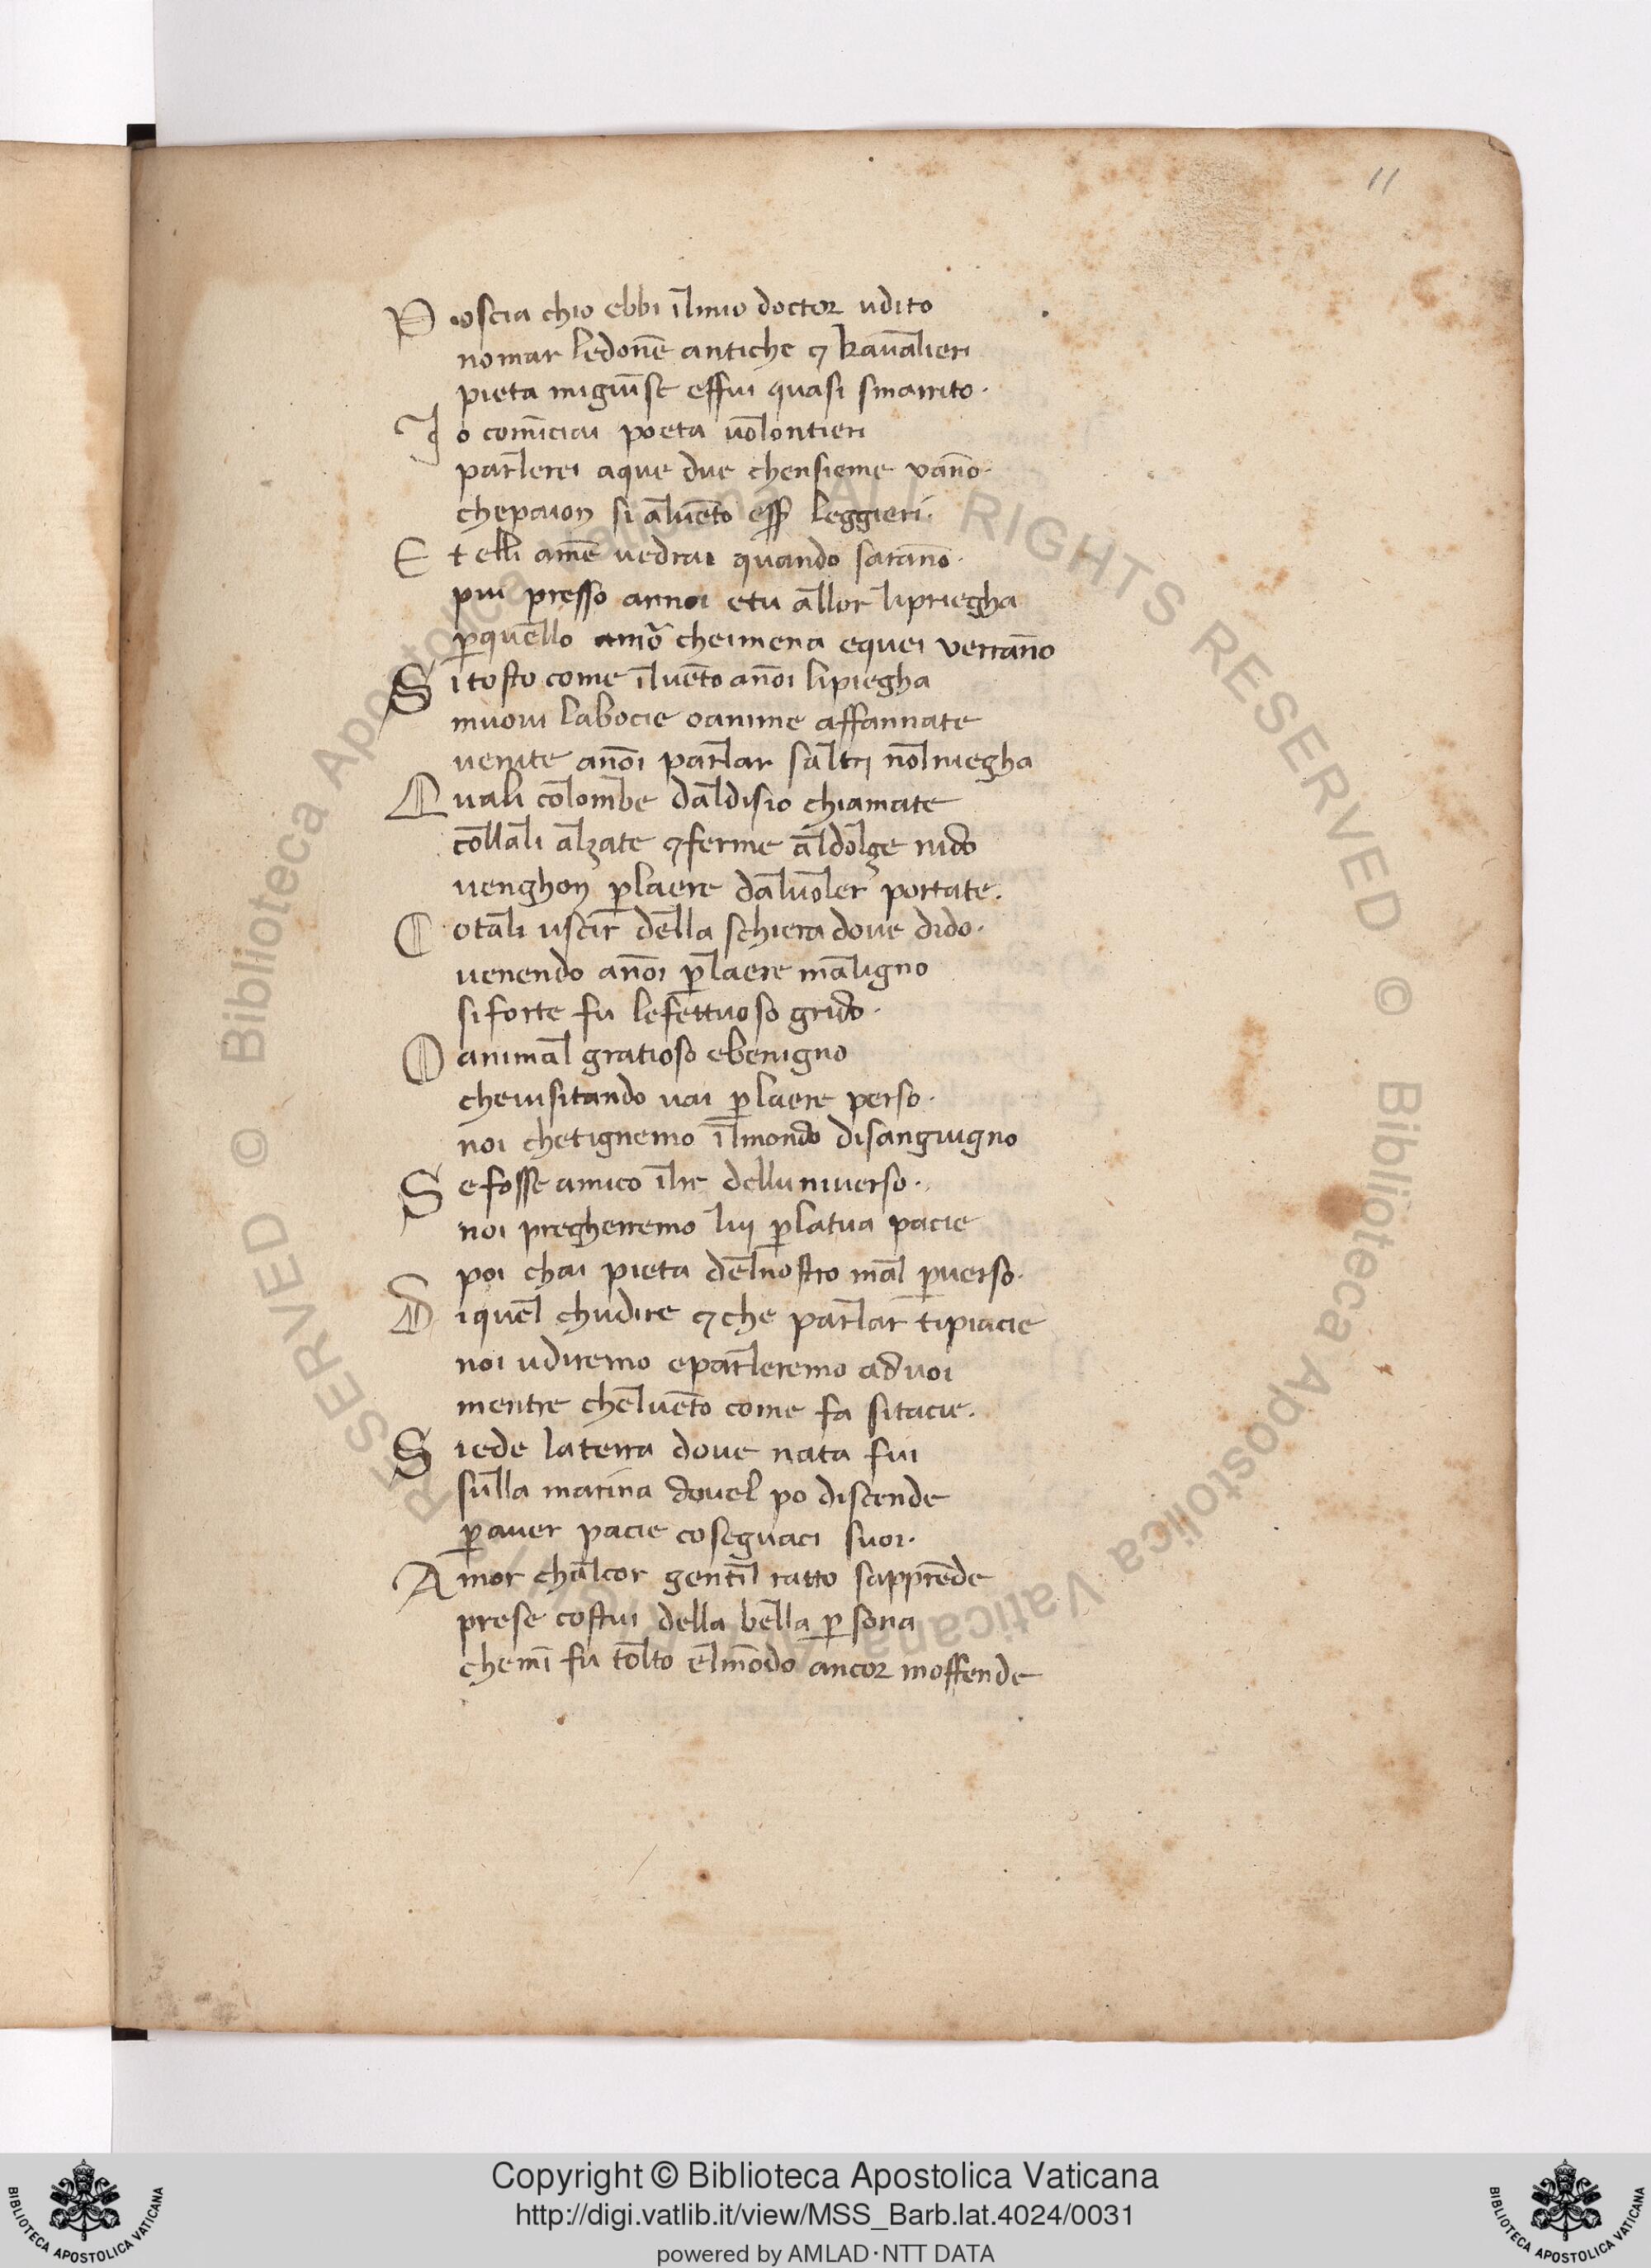 11
Poscia chio ebbi ilmio doctor udito
nomar ledoñe antiche ⁊ kavalieri
pieta migiũse effui quasi smarrito.
Io com̃iciai poeta volontieri
parlerei aque due chensieme vãno.
chepaion si alvẽto eẞ leggieri.
Et elli amẽ vedrai quando sarãno.
piu presso annoi etu allor lipriegha
ꝑquello amõ cheimena equei verrãno
Si tosto come ilvẽto añoi lipiegha
muovi labocie oanime affannate
venite añoi parlar saltri nolniegha
Quali colombe daldisio chiamate
collali alzate ⁊ferme aldolçe nido
venghon ꝑlaere dalvoler portate.
Cotali uscir della schiera dove dido.
venendo añoi ꝑlaere maligno
siforte fu lefettuoso grido.
O animal gratioso ebenigno
chevisitando vai ꝑlaere perso.
noi chetignemo ilmondo disanguigno
Se fosse amico ilre delluniverso.
noi pregherremo lui ꝑlatua pacie
poi chai pieta delnostro mal ꝑverso.
Di quel chudire ⁊che parlar tipiacie
noi udiremo eparleremo advoi
mentre chelvẽto come fa sitacie.
Siede laterra dove nata fui
sulla marina dovel po discende
ꝑaver pacie coseguaci suoi.
Amor chalcor gentil ratto sapprẽde
prese costui della bella ꝑsona
chemi fu tolto elmõdo ancor moffende
© Biblioteca Apostolica Vaticana ALL RIGHTS RESERVED © Biblioteca Apostolica Vaticana ALL RIGHTS RESERVED
BIBLIOTECA APOSTOLICA VATICANA
Copyright © Biblioteca Apostolica Vaticana
http://digi.vatlib.it/view/MSS_Barb.lat.4024/0031
powered by AMLAD·NTT DATA
BIBLIOTECA APOSTOLICA VATICANA